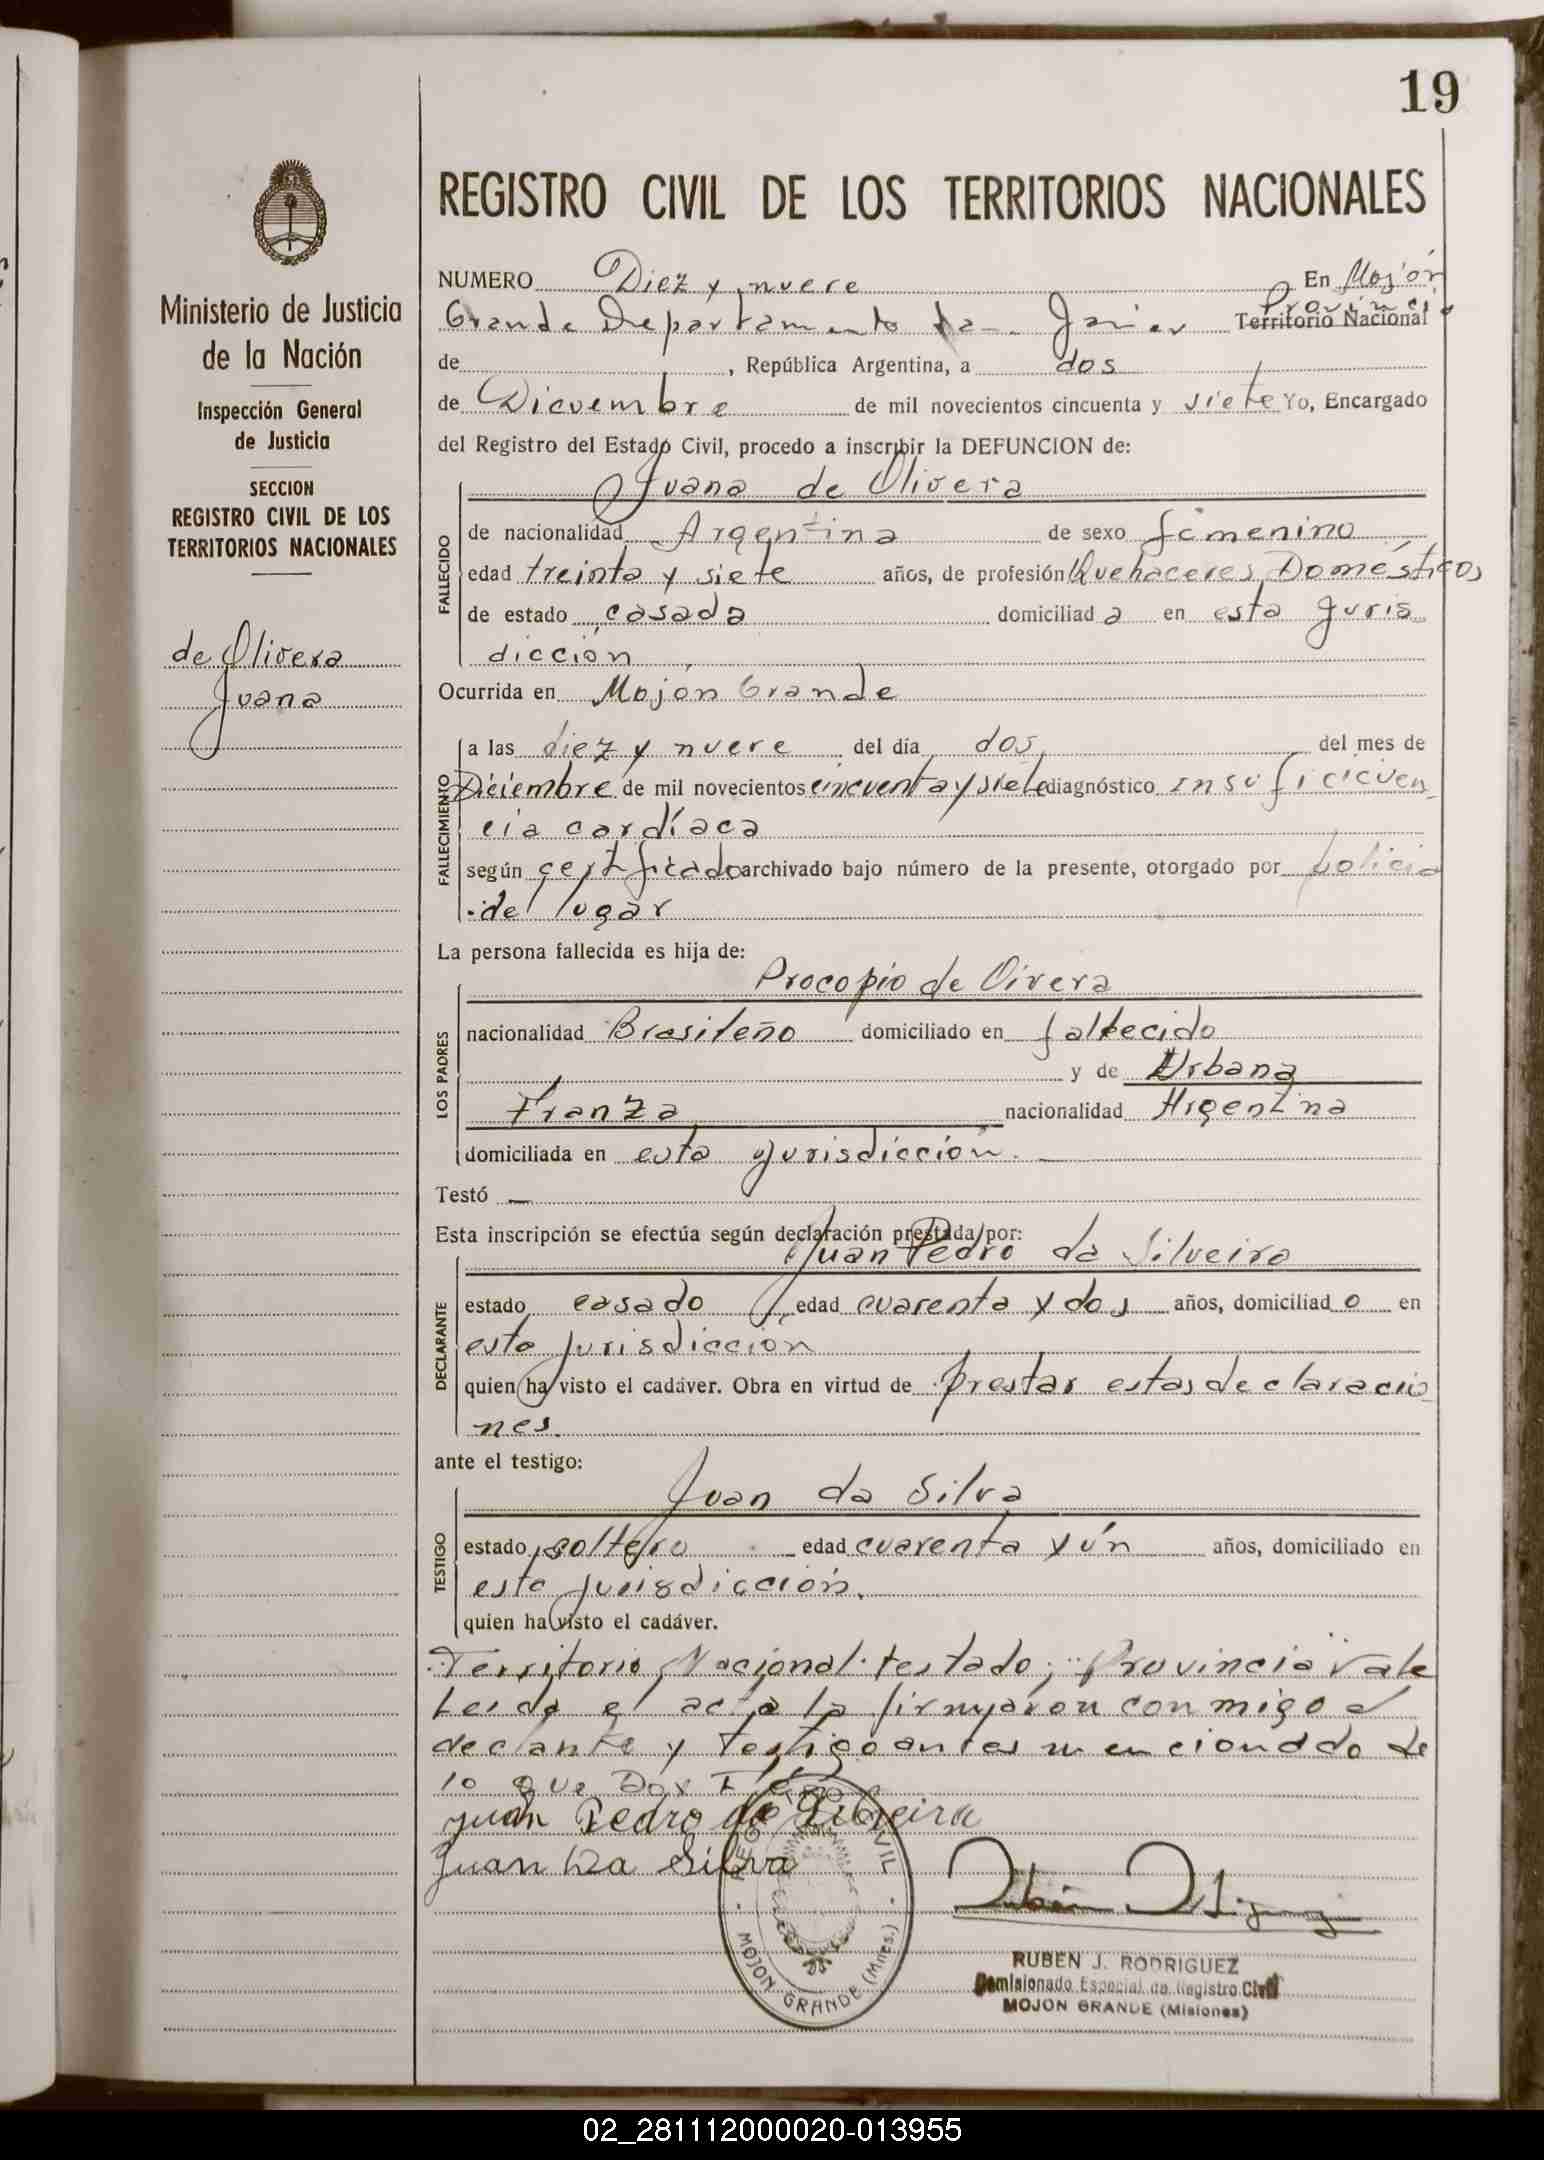 19
Ministerio de Justicia
de la Nación
Inspección General
de Justicia
SECCION
REGISTRO CIVIL DE LOS
TERRITORIOS NACIONALES
de Olivera
Juana
REGISTRO CIVIL DE LOS TERRITORIOS NACIONALES
NUMERO Diez y nueve En Mojón
Provinci
Grande Departamento Javier Territorio Nacional
de , República Argentina, a dos
de Dicuembre de mil novecientos cincuenta y siete Yo, Encargado
del Registro del Estado Civil, procedo a inscribir la DEFUNCION de:
Juana de Olivera
FALLECIDO
de nacionalidad Argentina de sexo femenino
edad treinta y siete años, de profesión Quehaceres Domésticos
de estado casada domiciliad a en esta Juris
dicción
Ocurrida en Mojon Grande
FALLECIMIENTO
a las diez y nueve del día dos del mes de
Diciembre de mil novecientos cincuenta y siete diagnóstico insuficicuen
cia cardíaca
según certificado archivado bajo número de la presente, otorgado por policia
del lugar
La persona fallecida es hija de:
Procopio de Oivera
LOS PADRES
nacionalidad Brasileño domiciliado en fallecido
y de Urbana
Franza nacionalidad Argentina
domiciliada en esta jurisdicción.
Testó —
Esta inscripción se efectúa según declaración prestada por:
Juan Pedro da Silveira
DECLARANTE
estado casado edad cuarenta y dos años, domiciliad o en
esta Jurisdicción
quien ha visto el cadáver. Obra en virtud de prestar estas declaracio
nes.
ante el testigo:
Juan da Silva
TESTIGO
estado soltero edad cuarenta y ún años, domiciliado en
esta jurisdicción.
quien ha visto el cadáver.
Territorio Nacional testado; Provincia Vale
Leida el acta la firmaron conmigo el
declante y testigo antes mencionddo de
lo que Doy Fé
Juan Pedro da Silveira
Juan Da Silva
REGISTRO CIVIL
MOJON GRANDE (Mnes.)
RUBEN J. RODRIGUEZ
Comisionado Especial de Registro Civil
MOJON GRANDE (Misiones)
02_281112000020-013955